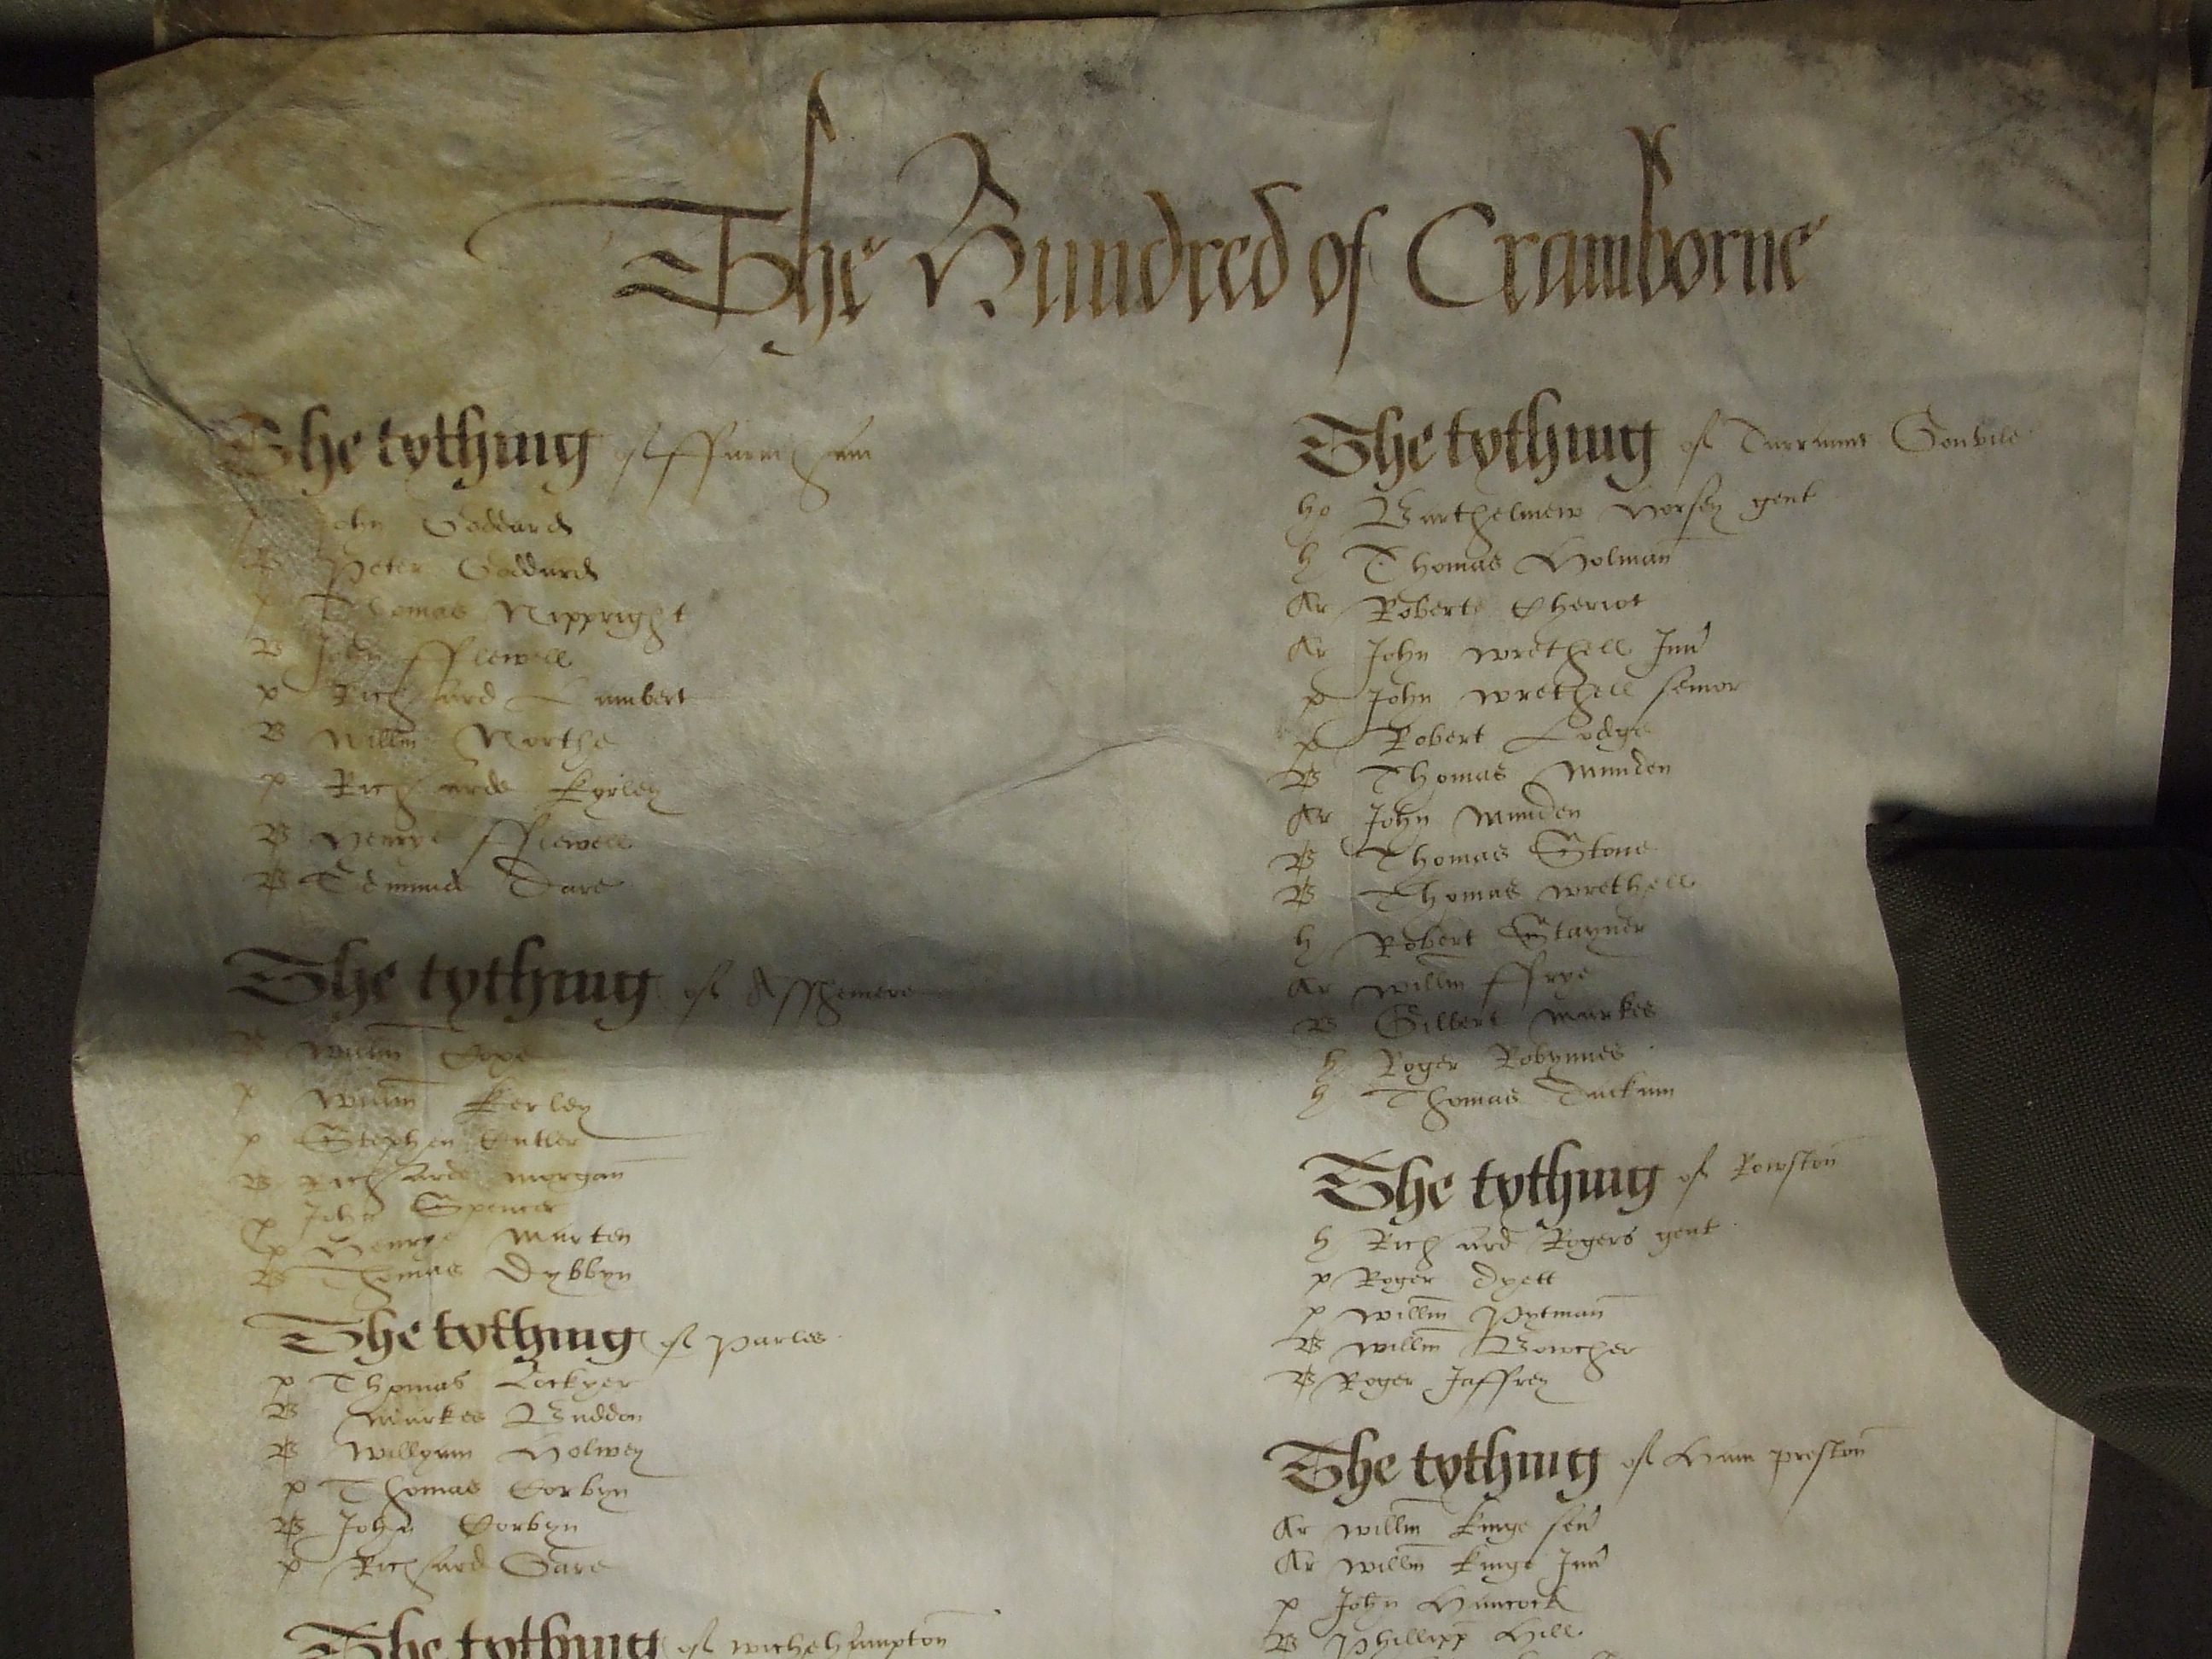 The Hundred of Cramborne
The tything of ffarnham
John Goddard
B Peter Goddard
p Thomas Nippright
B John fflewell
p Richard Lambert
B Willm Northe
p Richarde Kyrley
B Henrye fflewell
B Edmund Dare
The tything of Asshemere
B Willm Cope
p Willm Kerley
p Stephen Cutler
B Richarde Morgan
p John Spencer
p Henrye Marten
B Thomas Dybbyn
The tything of Parles
p Thomas Lockyer
B Markes Budden
B Willyam Holwey
p Thomas Corbyn
B John Corbyn
p Richard Gare
The tything of Wichehampton
The tything of Tarrant Gonvile
ho Barthelmew Horsey gent
h Thomas Holman
Ar Roberte Cheriot
Ar John Wrethell Jun
p John Wrethell senior
p Robert Lodge
B Thomas Munden
Ar John Munden
B Thomas Stone
B Thomas Wrethell
h Robert Stayner
Ar Willm ffrye
B Gilbert Markes
h Roger Robynnes
h Thomas
The tything of Rowston
h Richard Rogers gent
p Roger Dyett
p Willm Pytman
B Willm Bowcher
B Roger Jaffrey
The tything of Ham preston
Ar Willm Kinge sen
Ar Willm Kinge Jun
p John Hancock
B Phillipp Hill